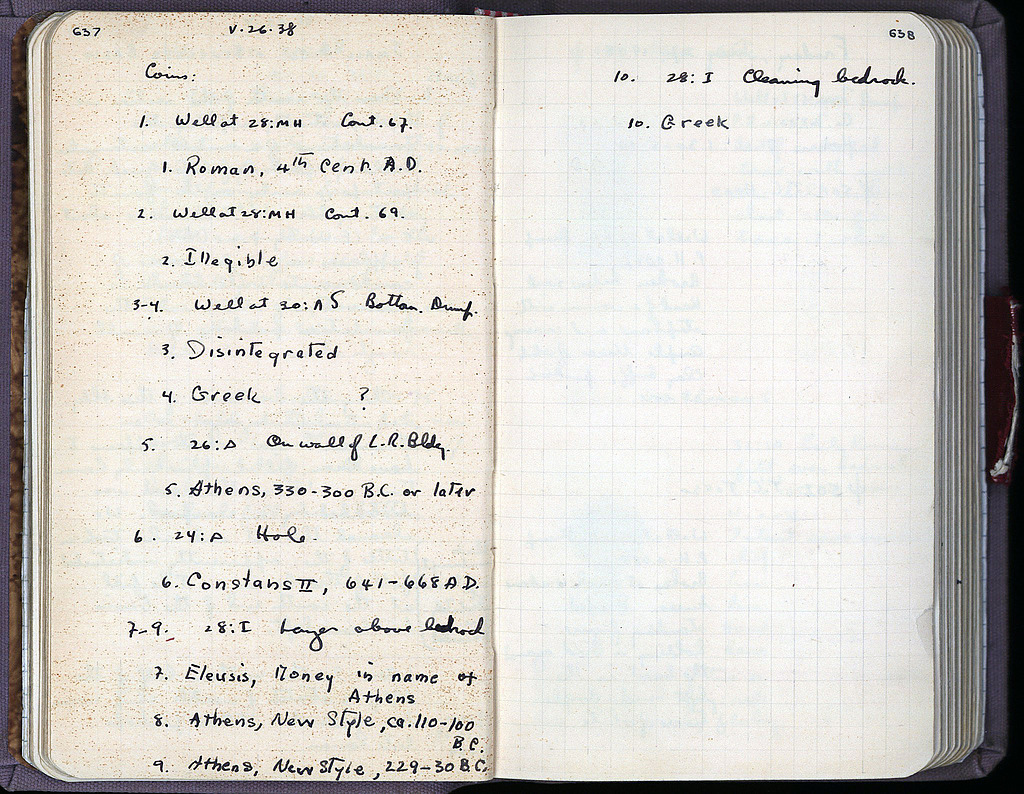 637
V.26.38
Coins:
1. Well at 28:MH Cont. 67.
1. Roman, 4th Cent. A.D.
2. Well at 28:MH Cont. 69.
2. Illegible
3-4. Well at 30:AS Bottom Dump.
3. Disintegrated
4. Greek ?
5. 26:Δ On wall of L.R. Bldg.
5. Athens, 330-300 B.C. or later
6. 24:Δ Hole.
6. Constans II, 641-668 A.D.
7-9. 28:I Layer above bedrock
7. Eleusis, Money in name of
Athens
8. Athens, New Style, ca. 110-100
B.C.
9. Athens, New Style, 229-30 B.C.
638
10. 28:I Cleaning bedrock.
10. Greek